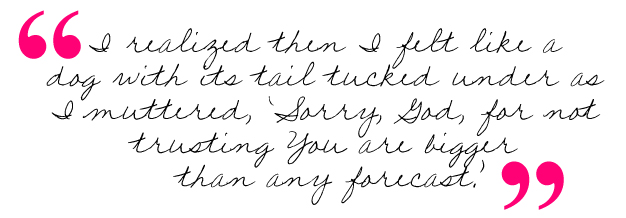 “I realized then I felt like a
dog with its tail tucked under as
I muttered, ‘Sorry, God, for not
trusting You are bigger
than any forecast.’”